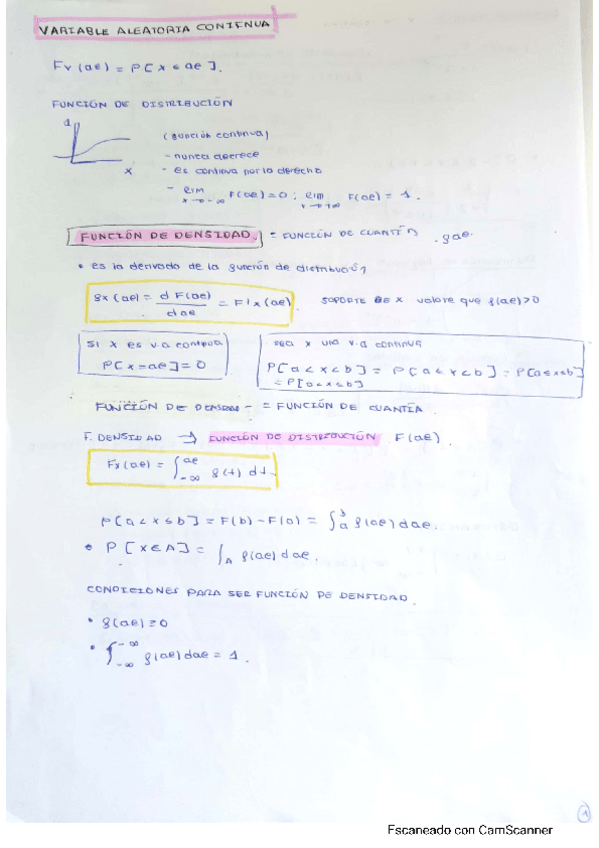 VARIABLE ALEATORIA CONTINUA
Fx(æ) = P[X ≤ æ].
FUNCIÓN DE DISTRIBUCIÓN
1
(función continua)
- nunca decrece
X
- es continua por la derecha
- lim x→-∞ F(æ) = 0 ; lim x→+∞ F(æ) = 1.
FUNCIÓN DE DENSIDAD. = FUNCIÓN DE CUANTÍA
• es la derivada de la función de distribución
fx(æ) = d F(æ) / dæ = F'x(æ)
SOPORTE DE X valore que f(æ)>0
SI X es v.a continua
P[X=æ] = 0
sea X una v.a continua
P[a<x<b] = P[a<x<b] = P[a≤x≤b]
= P[a<x≤b]
FUNCIÓN DE DENSIDAD = FUNCIÓN DE CUANTÍA
F. DENSIDAD → FUNCIÓN DE DISTRIBUCIÓN F(æ).
Fx(æ) = ∫ -∞ æ f(t) dt.
P[a<x≤b] = F(b) - F(a) = ∫ a b f(æ) dæ.
• P[X∈A] = ∫ A f(æ) dæ.
CONDICIONES PARA SER FUNCIÓN DE DENSIDAD
• f(æ) ≥ 0
• ∫ -∞ -∞ f(æ) dæ = 1.
1
Escaneado con CamScanner